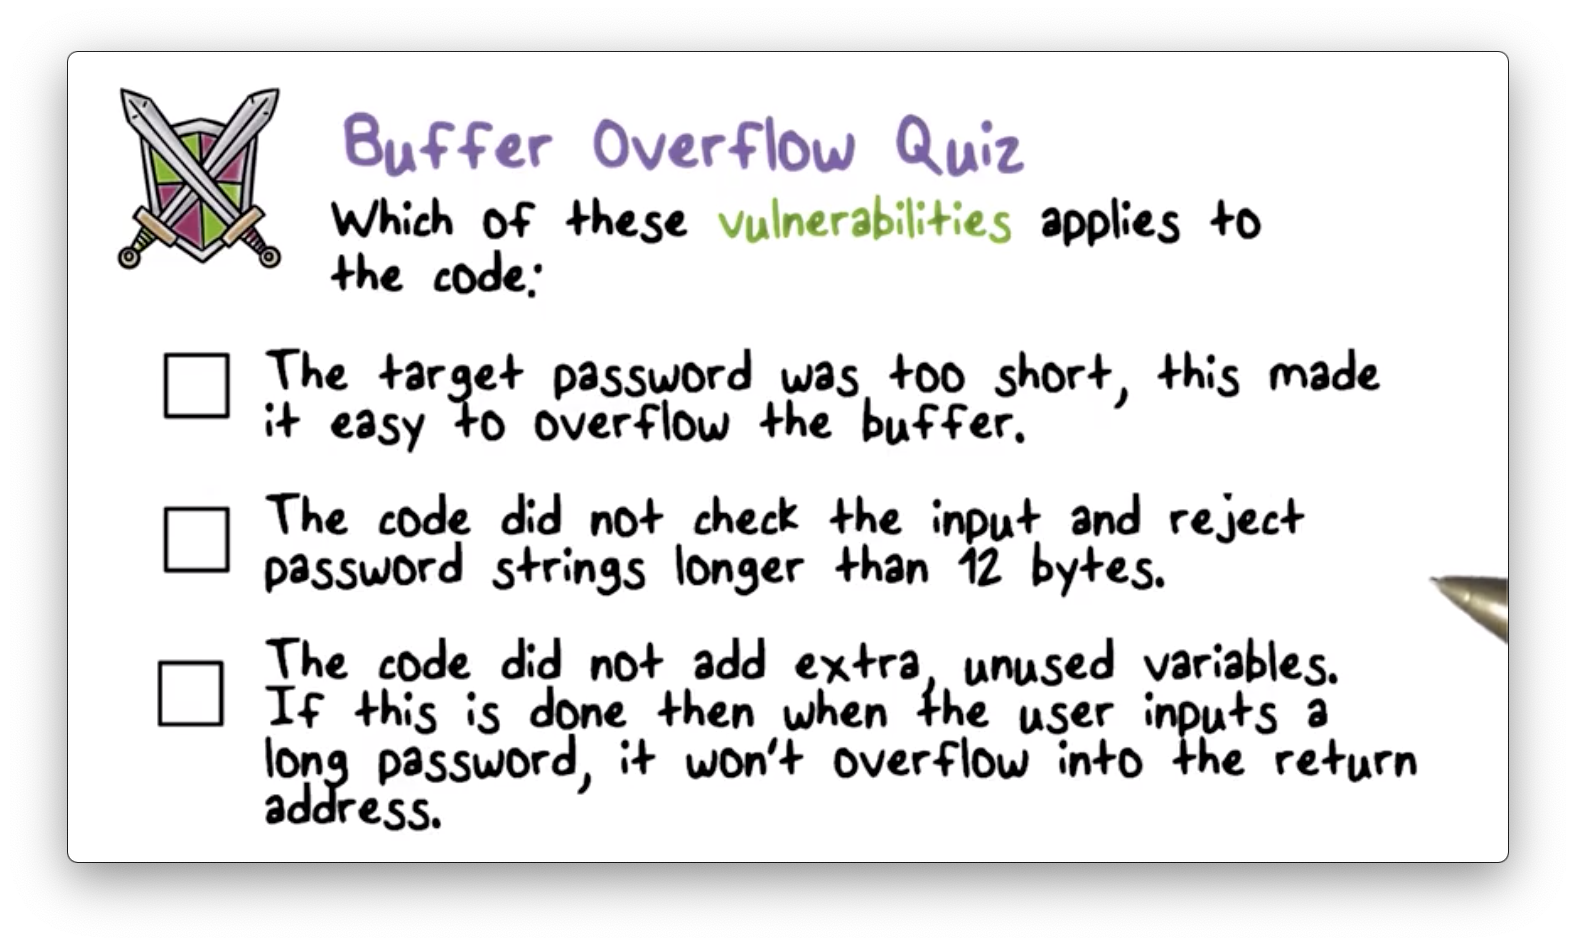 Buffer Overflow Quiz
Which of these vulnerabilities applies to
the code:
The target password was too short, this made
it easy to overflow the buffer.
The code did not check the input and reject
password strings longer than 12 bytes.
The code did not add extra, unused variables.
If this is done then when the user inputs a
long password, it won't overflow into the return
address.